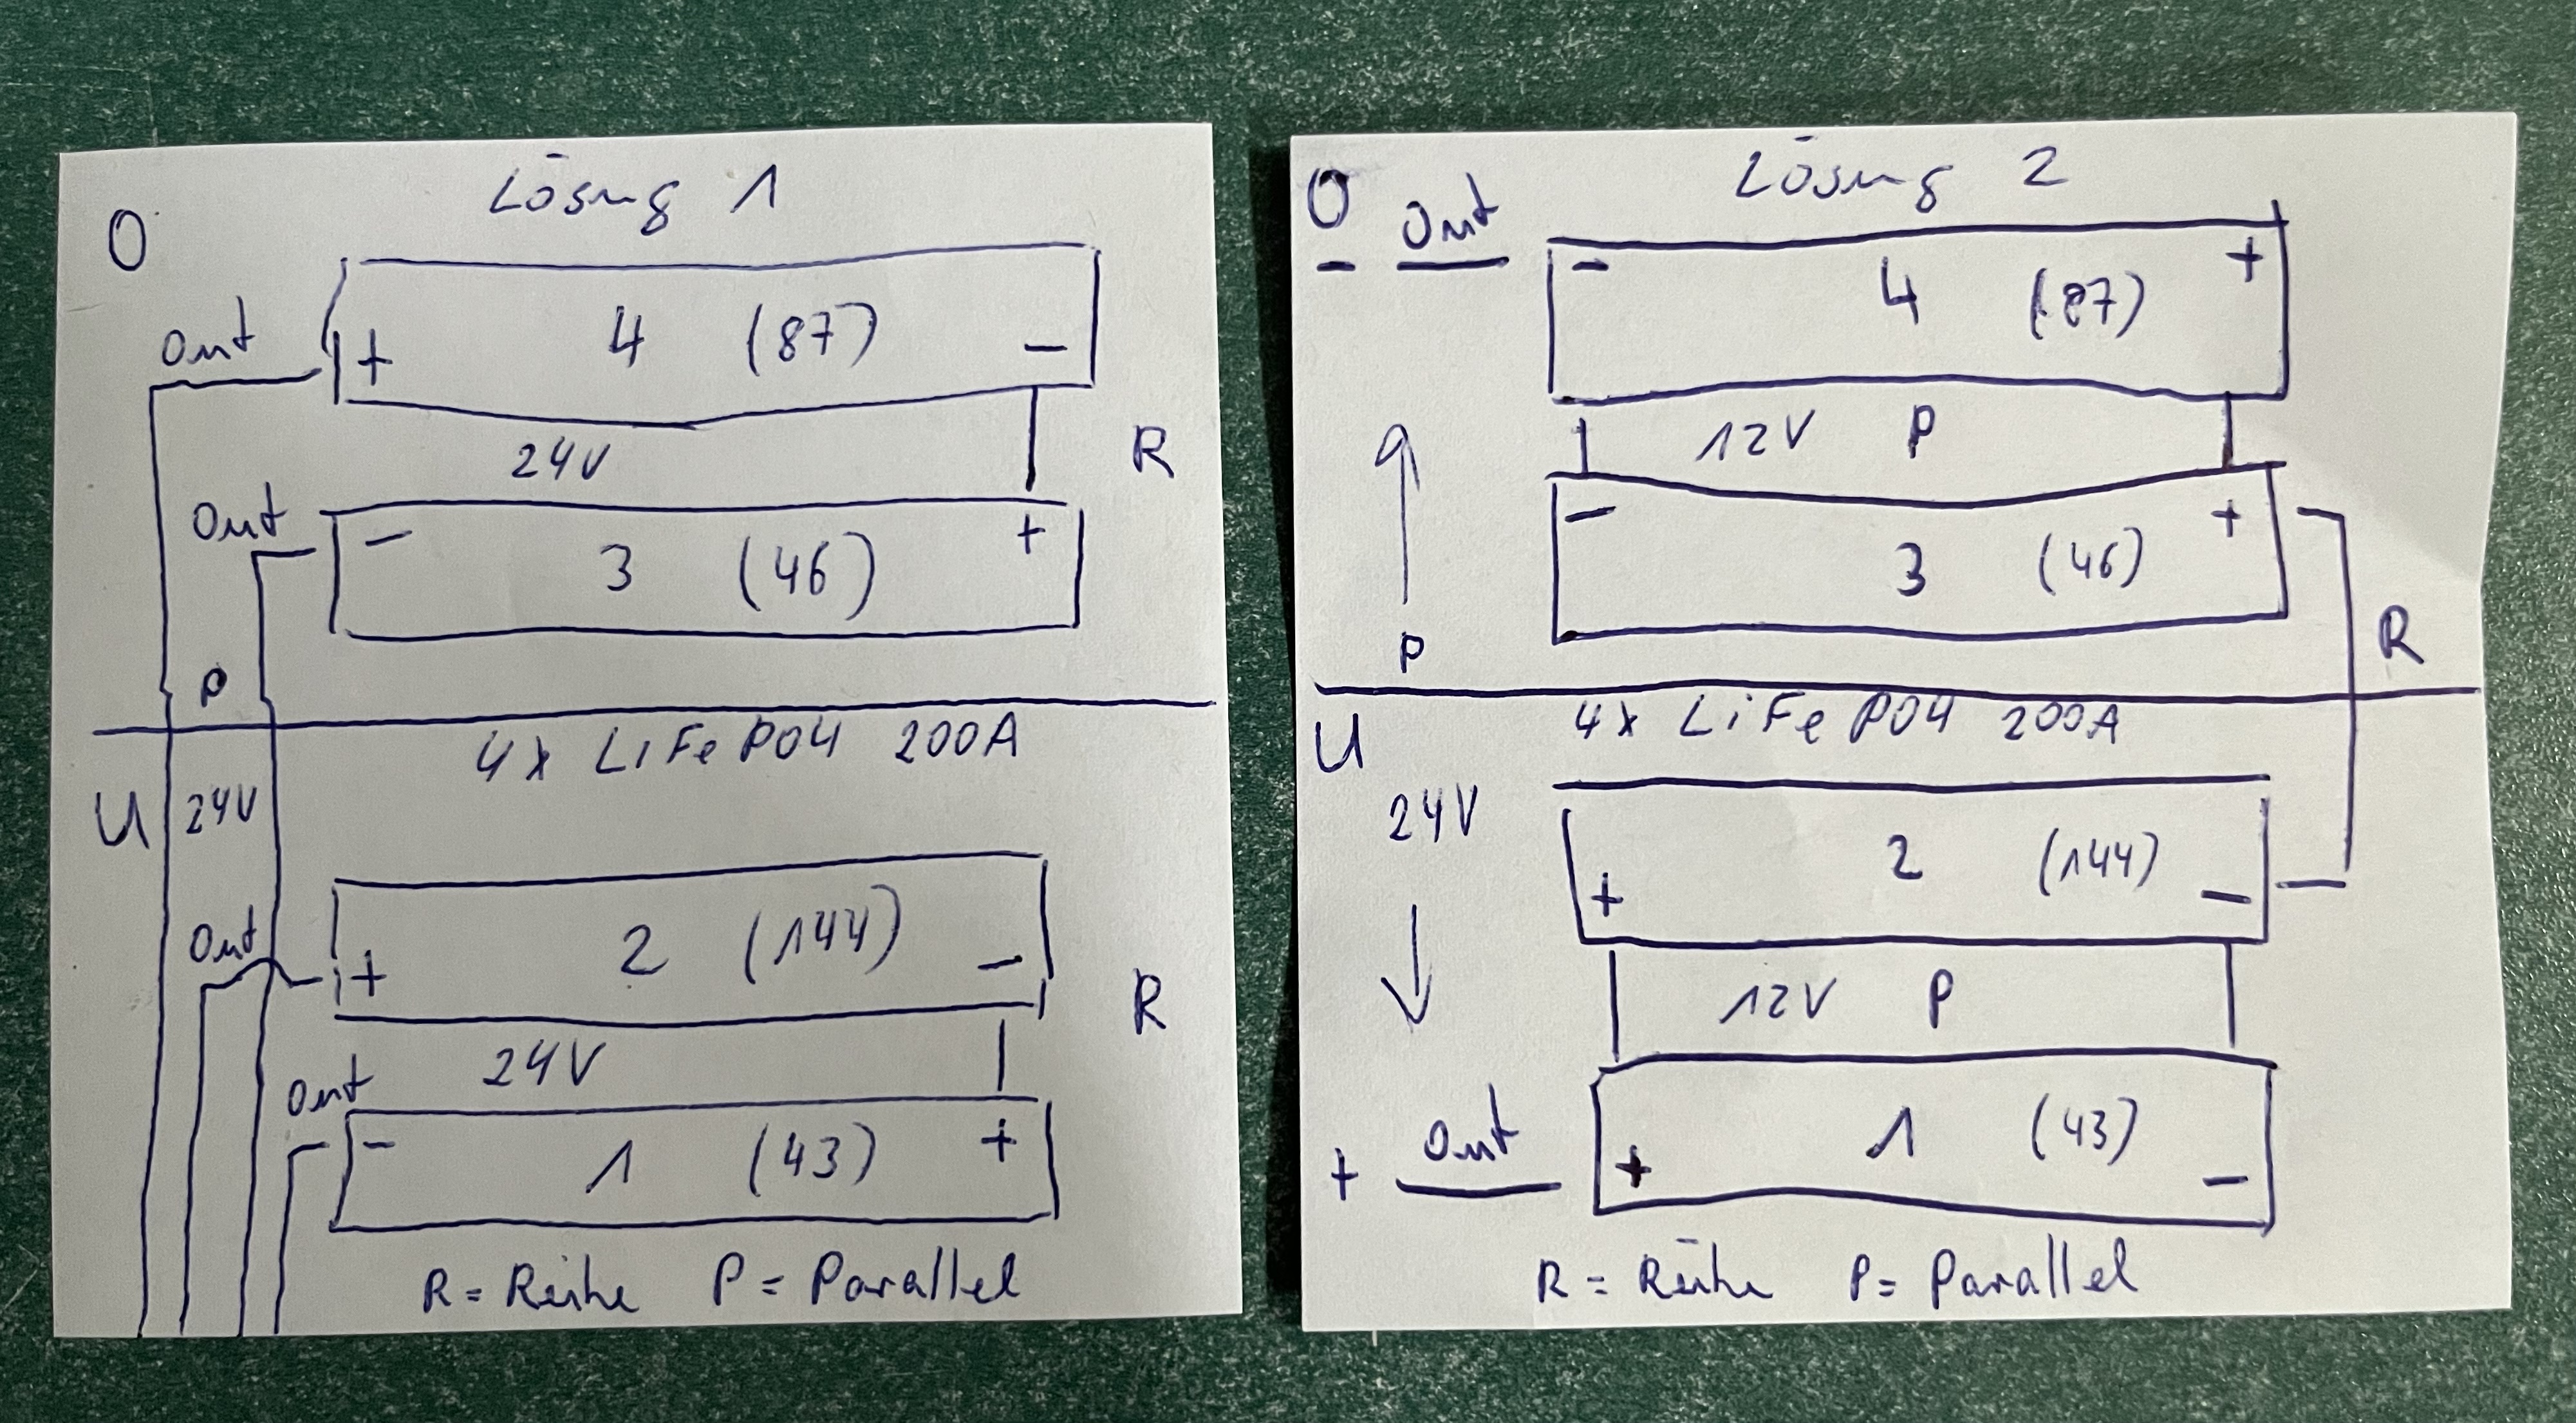 Lösung 1
O
Out
+ 4 (87) -
24V
R
Out
- 3 (46) +
P
4x LiFePO4 200A
U 24V
Out
+ 2 (144) -
R
24V
Out
- 1 (43) +
R = Reihe P = Parallel
Lösung 2
O
- Out
- 4 (87) +
12V P
- 3 (46) +
P
R
4x LiFePO4 200A
U
24V
+ 2 (144) -
12V P
+ Out
+ 1 (43) -
R = Reihe P = Parallel